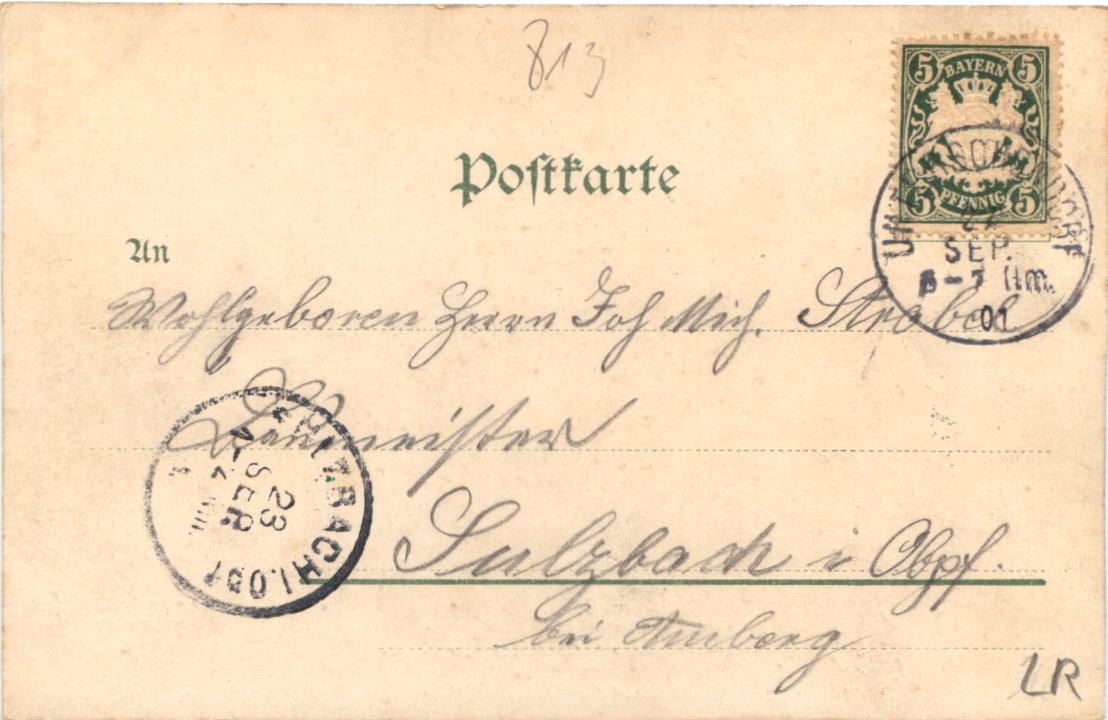 813
5 BAYERN 5
5 PFENNIG 5
Postkarte
SEP.
6-7 Nm.
01
An
Wohlgeboren Herrn Joh Mich. Strobel
Baumeister
SULZBACH I.OBF
23
SEP
Sulzbach i Obpf.
bei Amberg
LR